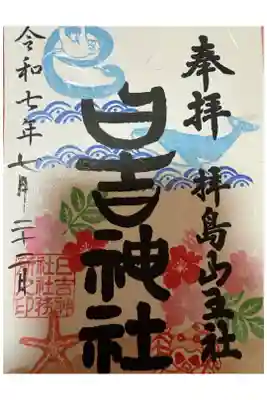 奉拝 拝島山王社
日吉神社
令和七年七月二十一日
日吉神
社社務
所印